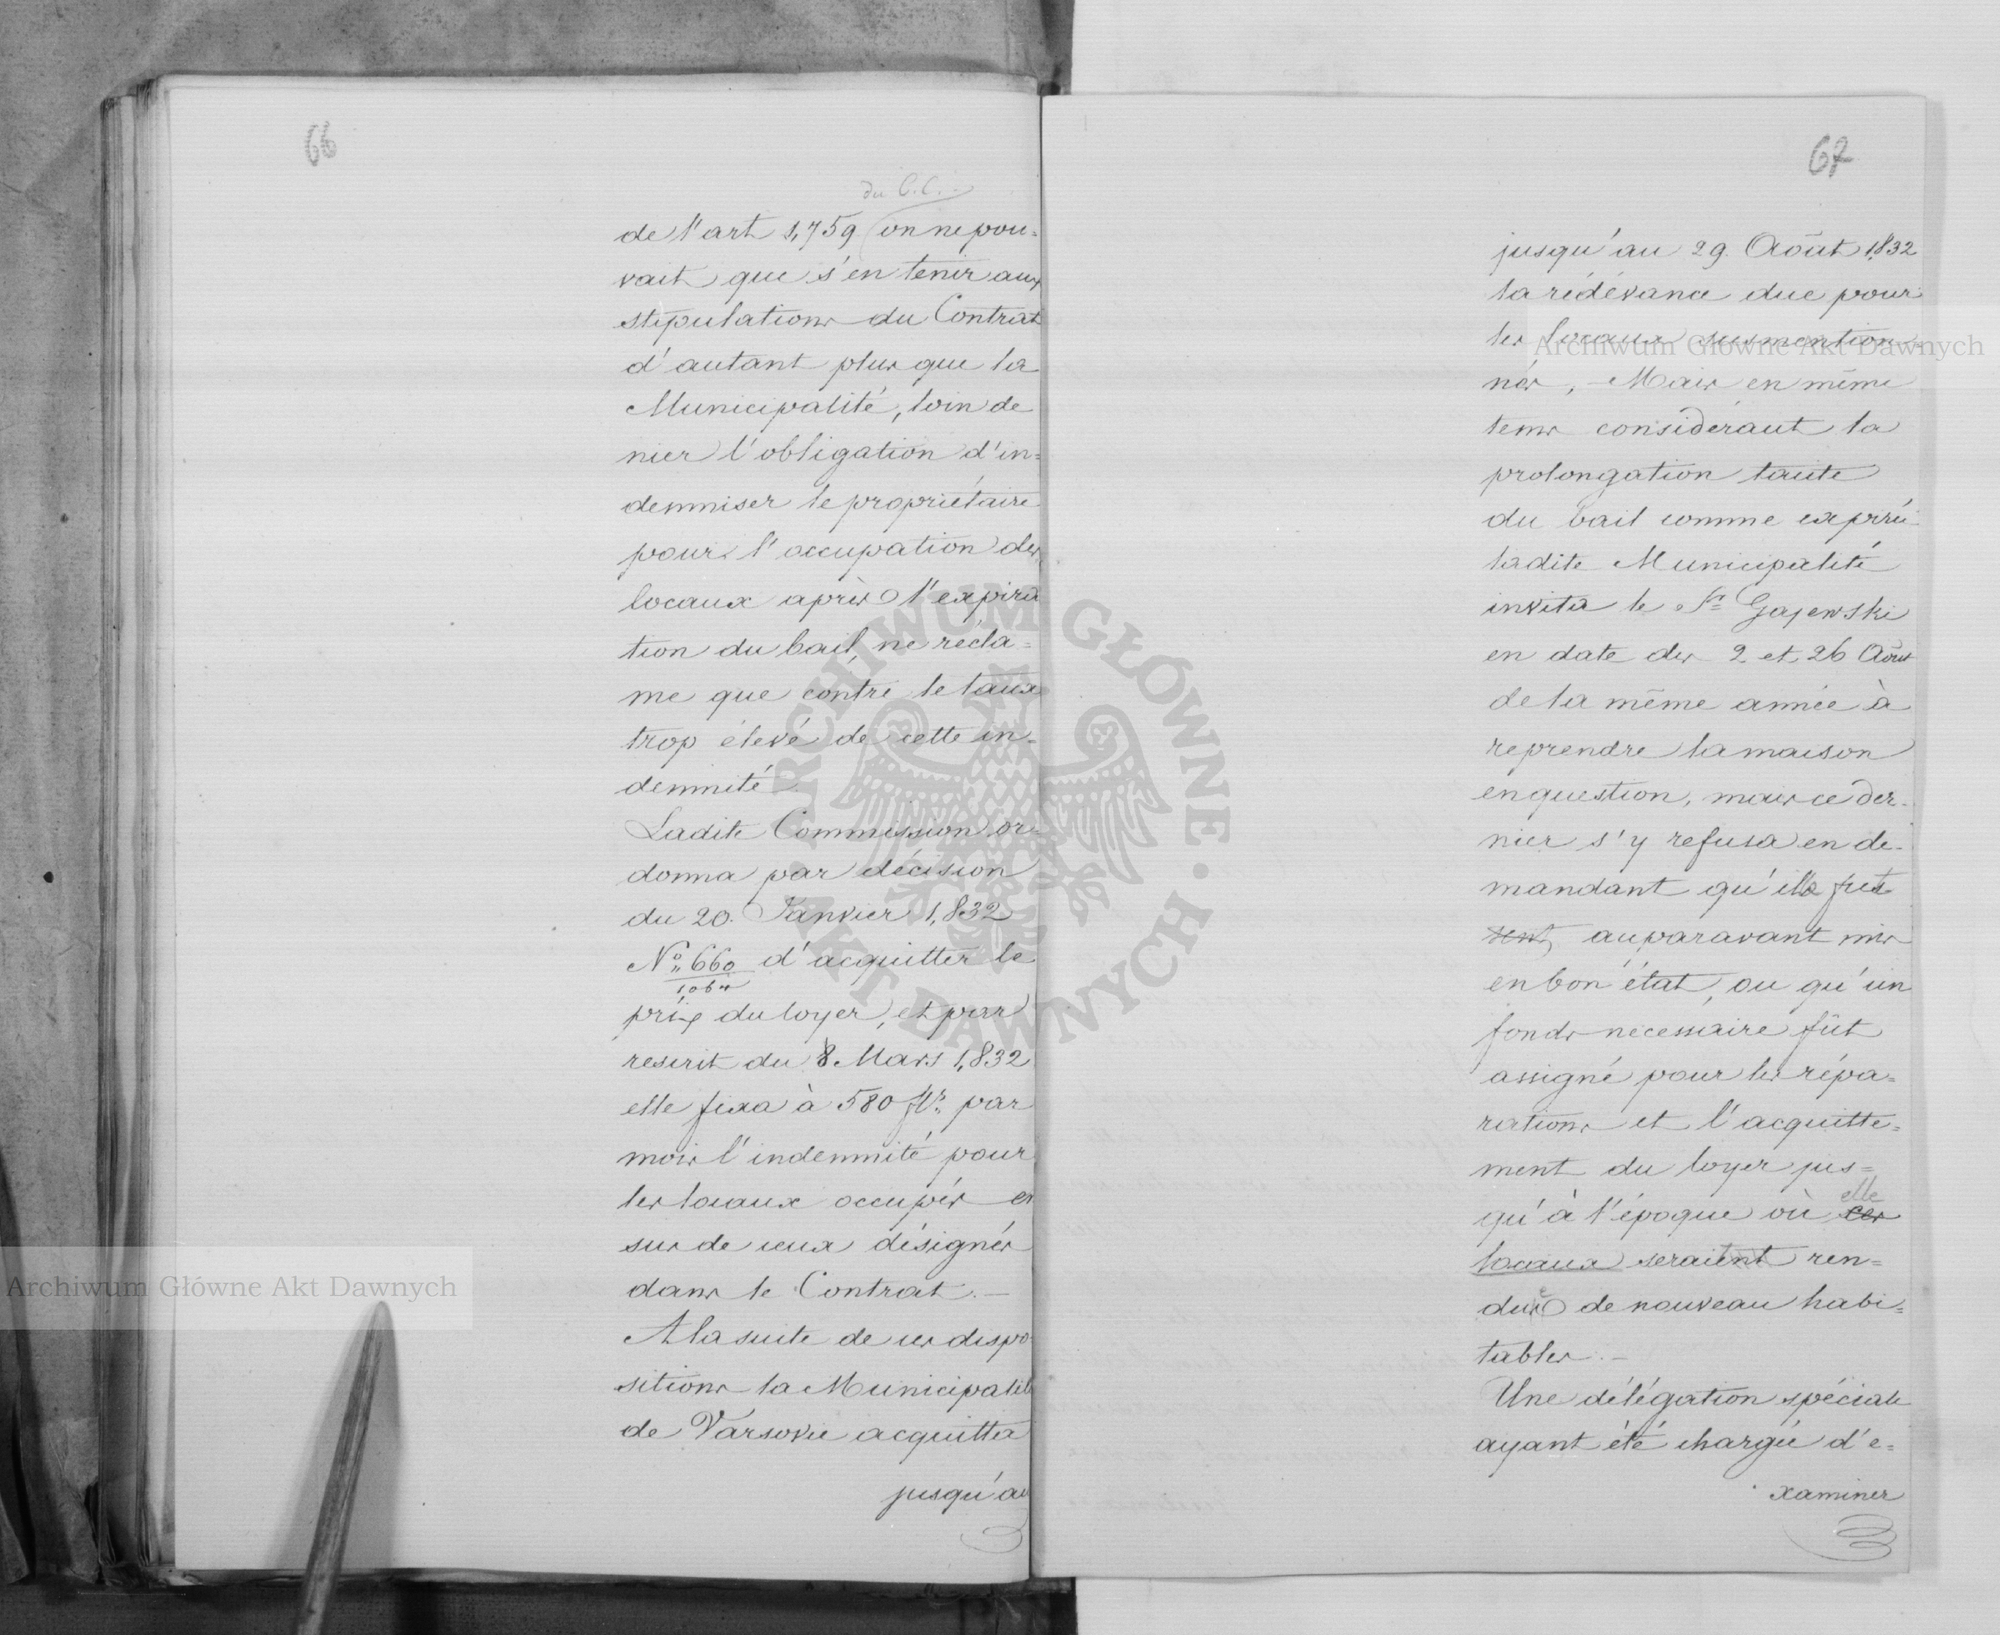 66
du C. C.
de l'art 1,759 on ne pou=
vait que s'en tenir aux
stipulations du Contrat
d'autant plus que la
Municipalité, loin de
nier l'obligation d'in=
demniser le propriétaire
pour l'occupation des
locaux après l'expira
tion du bail, ne récla=
me que contre le taux
trop élevé de cette in=
demnité
Ladite Commission or=
donna par décision
du 20. Janvier 1,832
No 660 d'acquitter le
prix du loyer, et par
rescrit du 8 Mars 1,832
elle fixa à 580 flrs. par
mois l'indemnité pour
les locaux occupés en
sus de ceux désignés
dans le Contrat. —
A la suite de ces dispo
sitions la Municipalité
de Varsovie acquitta
jusqu'au
67
jusqu'au 29. Août 1,832
la rédévance due pour
les locaux susmention=
nés, — Mais en même
tems considérant la
prolongation tacite
du bail comme expiré
ladite Municipalité
invita le Sr Gajewski
en date des 2 et 26 Août
de la même année à
reprendre la maison
en question, mais ce der=
nier s'y refusa en de=
mandant qu'elle fut
sent auparavant mis
en bon état, ou qu'un
fonds necessaire fût
assigné pour les répa=
rations et l'acquitte=
ment du loyer jus=
elle
qu'à l'époque où ces
locaux seraient ren=
dus de nouveau habi=
tables. —
Une délégation spéciale
ayant été chargée d'e=
xaminer
Archiwum Główne Akt Dawnych
Archiwum Główne Akt Dawnych
ARCHIWUM GŁÓWNE AKT DAWNYCH